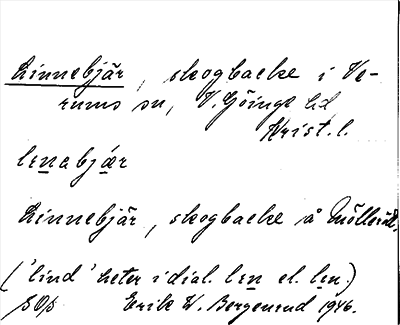 Linnebjär, skogbacke i Ve-
rums sn, V. Göinge hd
Krist. l.
lenabjær
Linnebjär, skogbacke å Mölleröd.
('lind' heter i dial. len el. len.)
SOp Erik W. Bergenrud 1946.